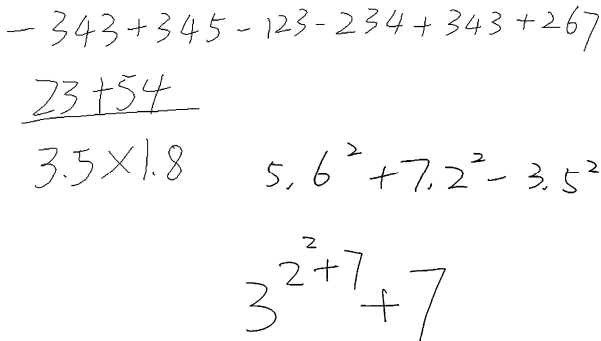 -343+345-123-234+343+267
23+54
3.5×1.8
5.6²+7.2²-3.5²
3^{2^2+7}+7